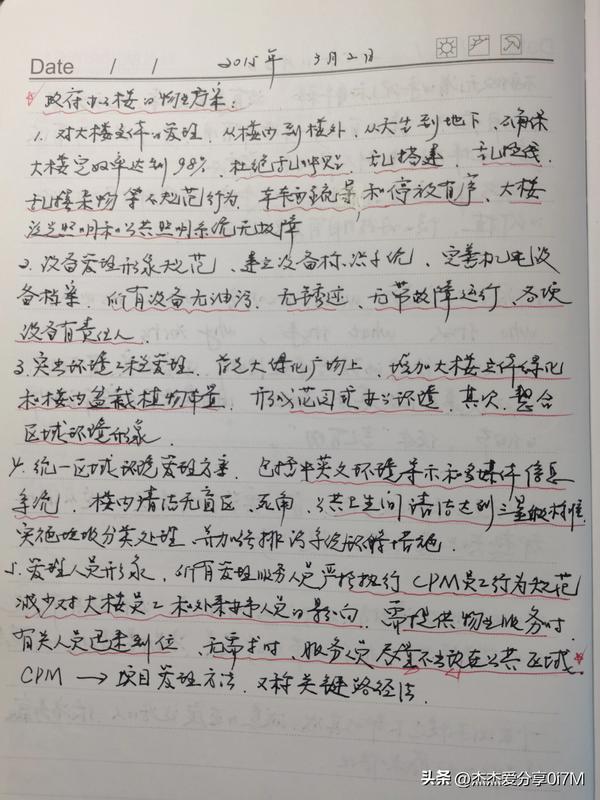 Date / / 2015年 3月2日
政府办公楼的物业方案:
1. 对大楼立体的管理. 从楼内到楼外, 从天生到地下, 确保
大楼完好率达到98%. 杜绝乱张贴. 乱搭建. 乱拉线.
乱堆杂物等不规范行为, 车辆疏导和停放有序, 大楼
泛光照明和公共照明系统无故障
2. 设备管理形象规范、建立设备标识系统, 完善机电设
备档案. 所有设备无油污. 无锈迹, 无带故障运行, 各项
设备有责任人.
3. 突出环境工程管理. 首先大绿化广场上, 增加大楼立体绿化
和楼内盆栽植物数量. 形成花园式办公环境, 其次, 整合
区域环境形象.
4. 统一区域环境管理方案. 包括中英文环境导示和多媒体信息
系统, 楼内清洁无盲区、死角. 公共卫生间清洁达到三星级标准.
实施垃圾分类处理、并加强排污系统
5. 管理人员形象, 所有管理服务人员严格执行CPM员工行为规范
减少对大楼员工和外来办事人员的影响. 需提供物业服务时.
有关人员迅速到位、无需求时、服务人员尽量不出现在公共区域.
CPM → 项目管理方法. 又称关键路径法.
头条 @杰杰爱分享0I7M